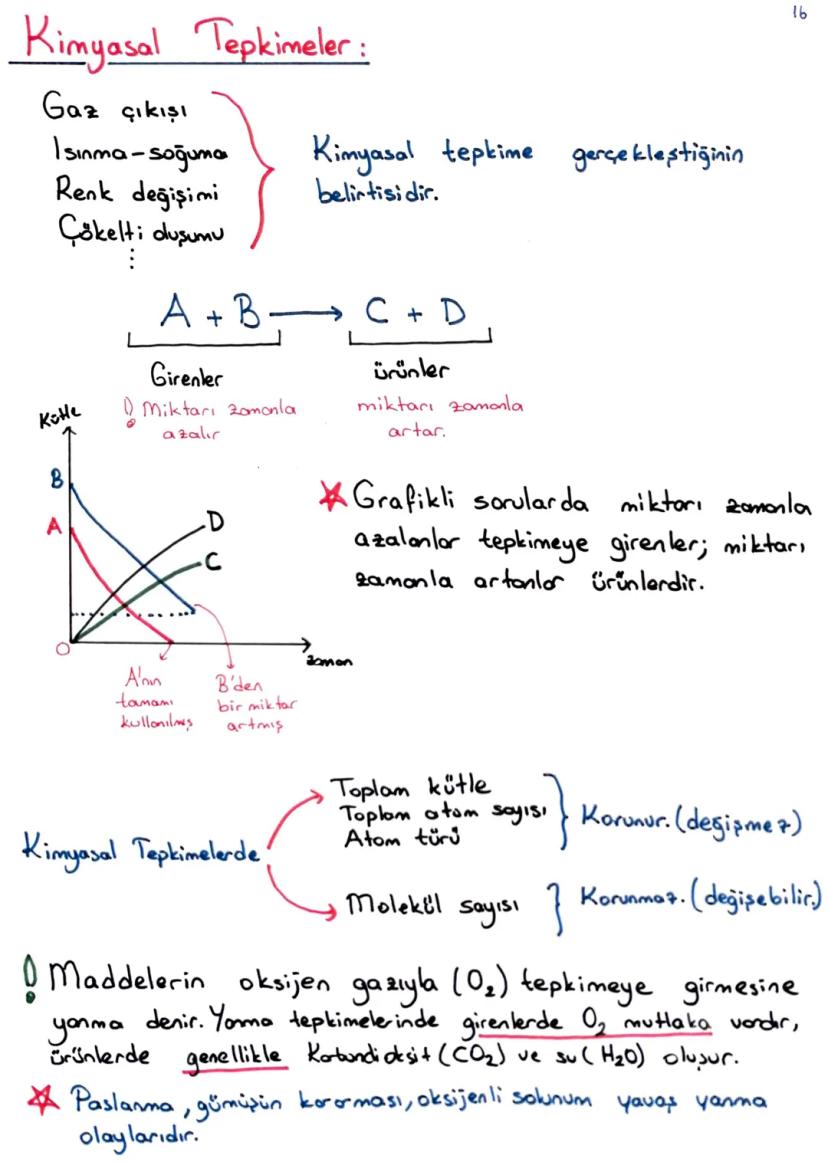 16
Kimyasal Tepkimeler:
Gaz çıkışı
Isınma-soğuma
Renk değişimi
Çökelti oluşumu
⋮
Kimyasal tepkime gerçekleştiğinin
belirtisidir.
A + B → C + D
Girenler
ürünler
! Miktarı zamanla
azalır
miktarı zamanla
artar.
Kütle
B
A
D
C
O
zaman
A'nın
tamamı
kullanılmış
B'den
bir miktar
artmış
* Grafikli sorularda miktarı zamanla
azalanlar tepkimeye girenler; miktarı
zamanla artanlar ürünlerdir.
Kimyasal Tepkimelerde
Toplam kütle
Toplam atom sayısı
Atom türü
Korunur. (değişmez)
Molekül sayısı
Korunmaz. (değişebilir.)
! Maddelerin oksijen gazıyla (O₂) tepkimeye girmesine
yanma denir. Yanma tepkimelerinde girenlerde O₂ mutlaka vardır,
ürünlerde genellikle Karbondioksit (CO₂) ve su (H₂O) oluşur.
* Paslanma, gümüşün kararması, oksijenli solunum yavaş yanma
olaylarıdır.